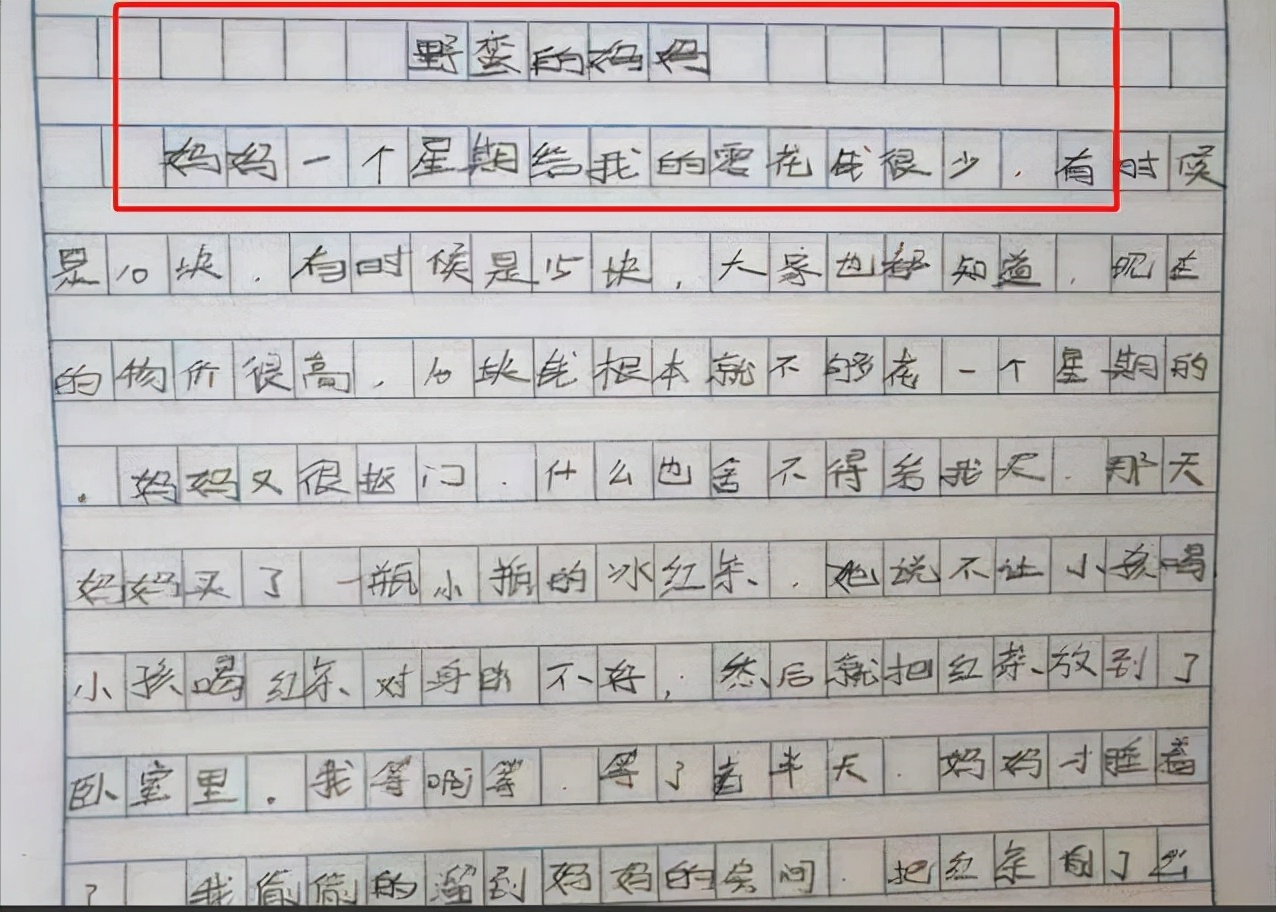 野蛮的妈妈
妈妈一个星期给我的零花钱很少.有时候
是10块.有时候是15块,大家也都知道.现在
的物价很高,10块钱根本就不够花一个星期的
.妈妈又很抠门.什么也舍不得给我买.那天
妈妈买了一瓶小瓶的冰红茶.她说不让小孩喝
小孩喝红茶对身体不好,然后就把红茶放到了
卧室里.我等啊等.等了老半天.妈妈才睡着
了 我偷偷的溜到妈妈的房间.把红茶